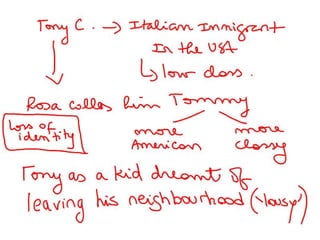 Tony C. → Italian Immigrant
In the USA
↳ low class.
Rosa calles him Tommy
Loss of
identity
more
American
more
classy
Tony as a kid dreamt of
leaving his neighbourhood ('lousy')